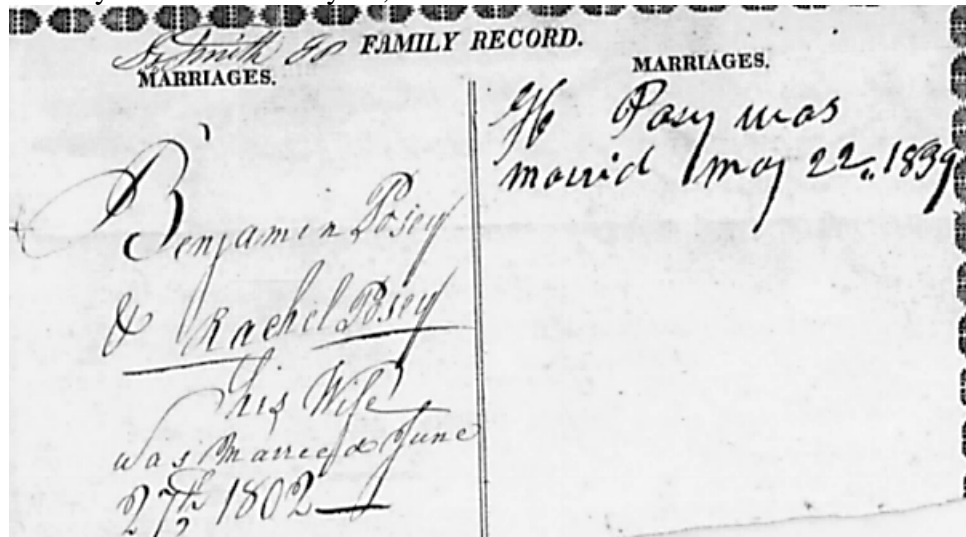 FAMILY RECORD.
MARRIAGES.
Benjamin Posey
& Rachel Posey
his Wife
was Married June
27th 1802
MARRIAGES.
Posy was
marrid may 22. 1839